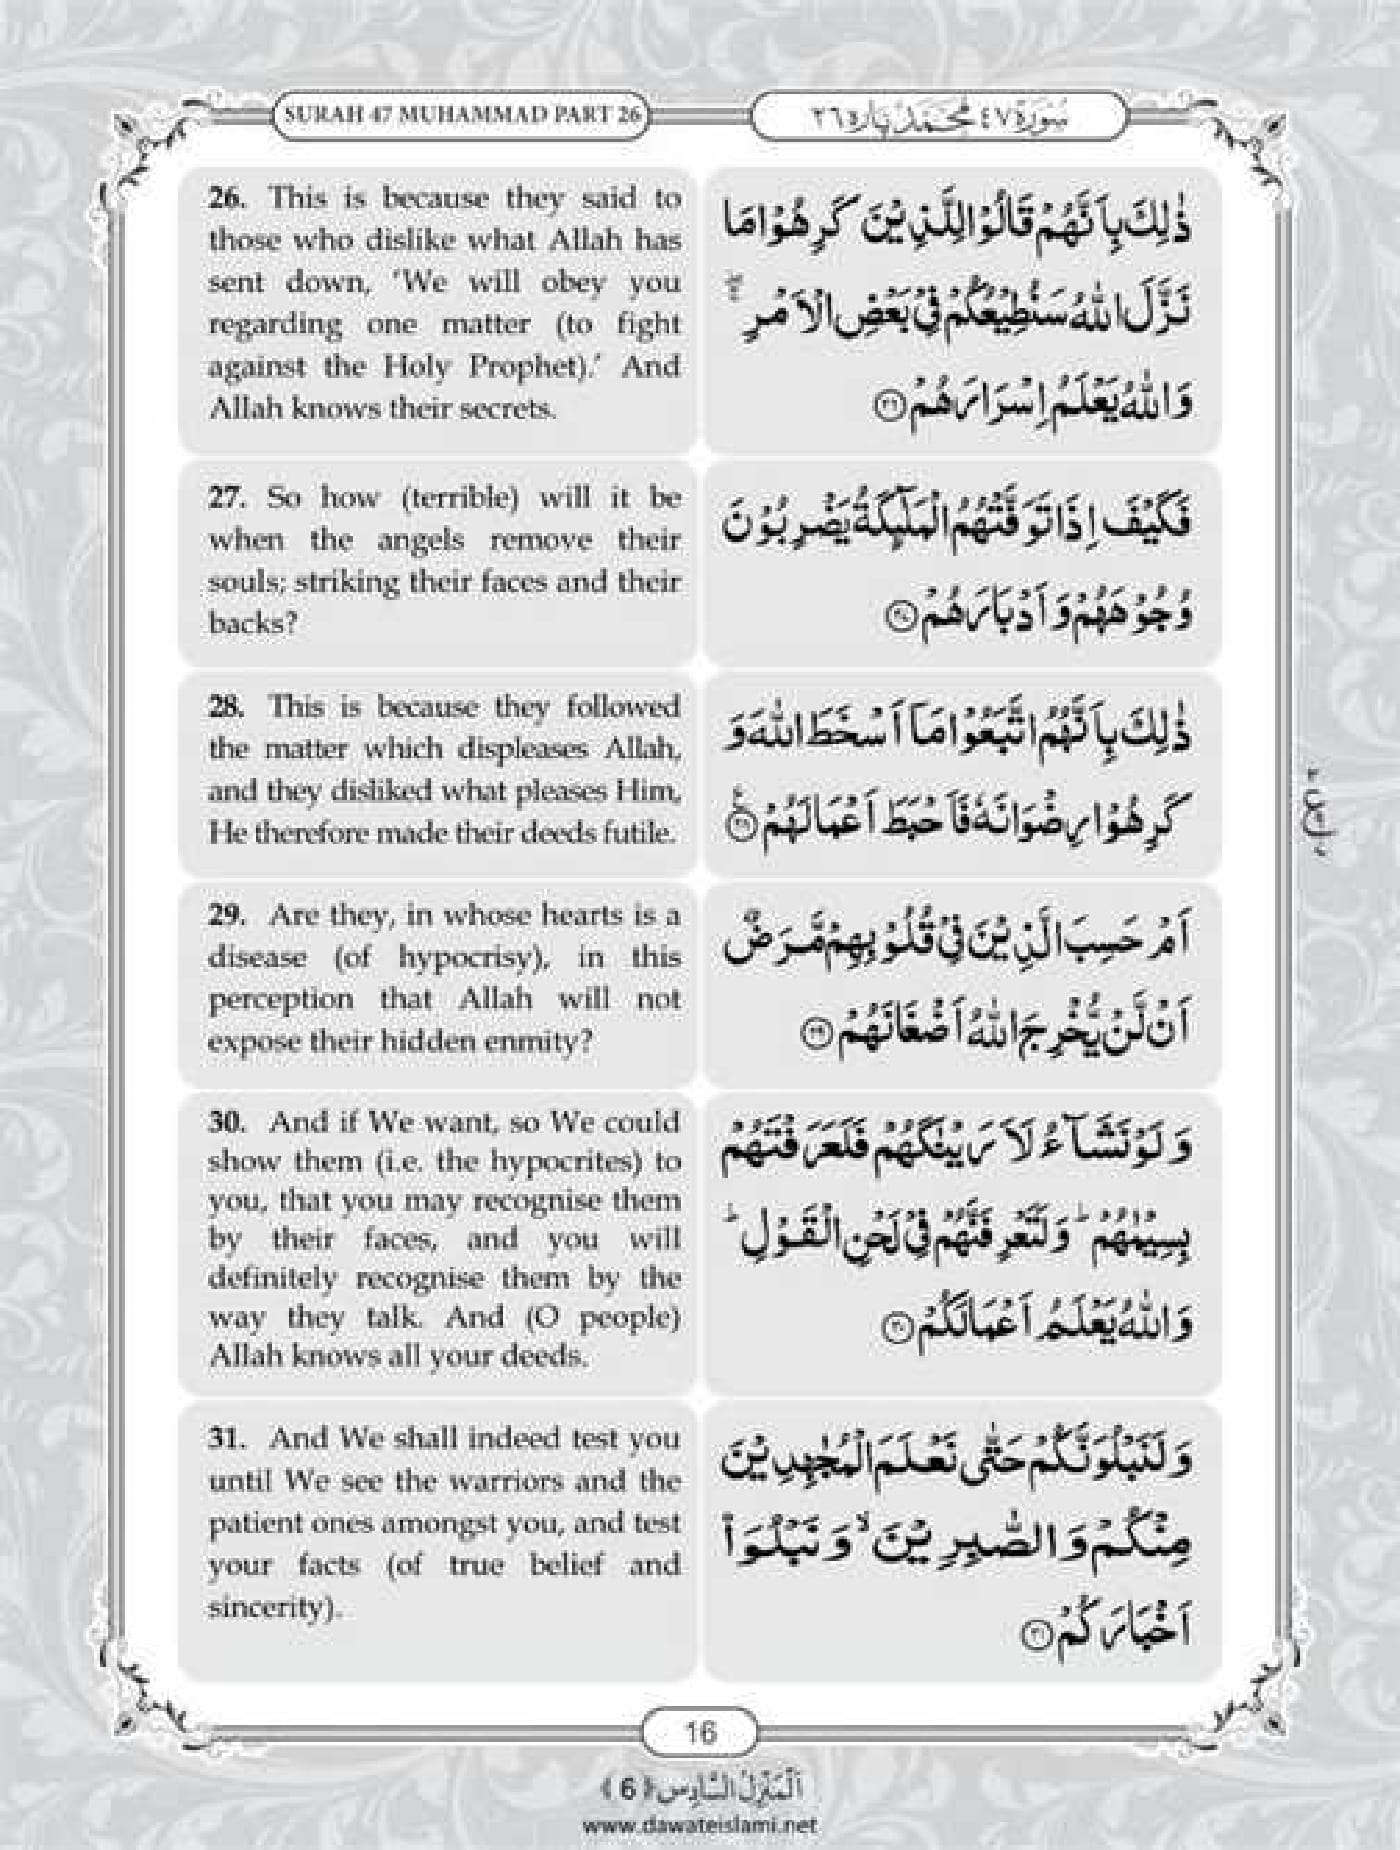 SURAH 47 MUHAMMAD PART 26
سُورَة ٤٧ مُحَمَّد پاره ٢٦
26. This is because they said to
those who dislike what Allah has
sent down, ‘We will obey you
regarding one matter (to fight
against the Holy Prophet).’ And
Allah knows their secrets.
ذٰلِكَ بِاَنَّهُمْ قَالُوْا لِلَّذِيْنَ كَرِهُوْا مَا
نَزَّلَ اللهُ سَنُطِيْعُكُمْ فِيْ بَعْضِ الْاَمْرِ ۖ
وَاللهُ يَعْلَمُ اِسْرَارَهُمْ ﴿٢٦﴾
27. So how (terrible) will it be
when the angels remove their
souls; striking their faces and their
backs?
فَكَيْفَ اِذَا تَوَفَّتْهُمُ الْمَلٰٓئِكَةُ يَضْرِبُوْنَ
وُجُوْهَهُمْ وَ اَدْبَارَهُمْ ﴿٢٧﴾
28. This is because they followed
the matter which displeases Allah,
and they disliked what pleases Him,
He therefore made their deeds futile.
ذٰلِكَ بِاَنَّهُمُ اتَّبَعُوْا مَاۤ اَسْخَطَ اللهَ وَ
كَرِهُوْا رِضْوَانَهٗ فَاَحْبَطَ اَعْمَالَهُمْ ﴿٢٨﴾
29. Are they, in whose hearts is a
disease (of hypocrisy), in this
perception that Allah will not
expose their hidden enmity?
اَمْ حَسِبَ الَّذِيْنَ فِيْ قُلُوْبِهِمْ مَّرَضٌ
اَنْ لَّنْ يُّخْرِجَ اللهُ اَضْغَانَهُمْ ﴿٢٩﴾
30. And if We want, so We could
show them (i.e. the hypocrites) to
you, that you may recognise them
by their faces, and you will
definitely recognise them by the
way they talk. And (O people)
Allah knows all your deeds.
وَ لَوْ نَشَآءُ لَاَرَيْنٰكَهُمْ فَلَعَرَفْتَهُمْ
بِسِيْمٰهُمْ ؕ وَ لَتَعْرِفَنَّهُمْ فِيْ لَحْنِ الْقَوْلِ ؕ
وَاللهُ يَعْلَمُ اَعْمَالَكُمْ ﴿٣٠﴾
31. And We shall indeed test you
until We see the warriors and the
patient ones amongst you, and test
your facts (of true belief and
sincerity).
وَ لَنَبْلُوَنَّكُمْ حَتّٰى نَعْلَمَ الْمُجٰهِدِيْنَ
مِنْكُمْ وَ الصّٰبِرِيْنَ ۙ وَ نَبْلُوَا۟
اَخْبَارَكُمْ ﴿٣١﴾
16
اَلْمَنْزِلُ السَّادِس ﴿6﴾
www.dawateislami.net